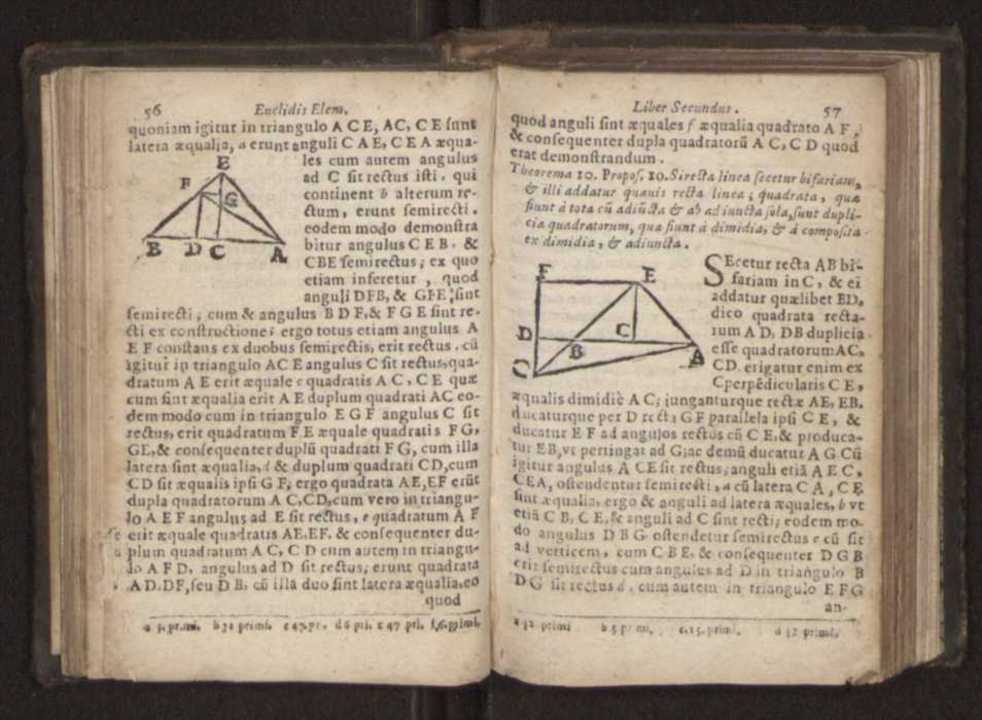 56 Euclidis Elem.
quoniam igitur in triangulo A C E, AC, C E sunt
latera æqualia, a erunt anguli C A E, C E A æqua-
les cum autem angulus
ad C sit rectus isti, qui
continent b alterum re-
ctum, erunt semirecti.
eodem modo demonstra
bitur angulus C E B. &
CBE semirectus; ex quo
etiam inferetur, quod
anguli DFB, & GFE sint
E
F
G
B D C A
semirecti, cum & angulus B D F, & F G E sint re-
cti ex constructione; ergo totus etiam angulus A
E F constans ex duobus semirectis, erit rectus. cū
igitur in triangulo AC E angulus C sit rectus, qua-
dratum A E erit æquale c quadratis A C, C E quæ
cum sint æqualia erit A E duplum quadrati AC eo-
dem modo cum in triangulo E G F angulus C sit
rectus, erit quadratum F E æquale quadratis F G,
GE, & consequenter duplū quadrati F G, cum illa
latera sint æqualia, d & duplum quadrati CD, cum
CD sit æqualis ipsi G F; ergo quadrata AE, EF erūt
dupla quadratorum A C, CD, cum vero in triangu-
lo A E F angulus ad E sit rectus, e quadratum A F
erit æquale quadratis AE, EF. & consequenter du-
plum quadratum A C, C D cum autem in triangu-
lo A F D. angulus ad D sit rectus; erunt quadrata
A D. DF, seu D B. cū illa duo sint latera æqualia, eo
quod
a 5. pr. b 32 primi. c 47. pr. d 6 pri. e 47 pri. f 6. primi.
Liber Secundus. 57
quod anguli sint æquales f æqualia quadrato A F,
& consequenter dupla quadratorū A C, C D quod
erat demonstrandum.
Theorema 10. Propos. 10. Si recta linea secetur bifariam,
& illi addatur quauis recta linea; quadrata, quæ
fiunt à tota cū adiūcta & ab adiuncta sola, sunt dupli-
cia quadratorum, quæ fiunt à dimidia, & à composita
ex dimidia, & adiuncta.
F E
D C
B A
C
SEcetur recta AB bi-
fariam in C, & ei
addatur quælibet BD,
dico quadrata recta-
rum A D, DB duplicia
esse quadratorum AC,
CD. erigatur enim ex
C perpēdicularis C E,
æqualis dimidiè A C; iunganturque rectæ AE, EB.
ducaturque per D recta G F parallela ipsi C E, &
ducatur E F ad angulos rectos cū C E, & produca-
tur EB, vt pertingat ad G; ac demū ducatur A G. Cū
igitur angulus A CE sit rectus, anguli etiā A E C,
CEA, ostendentur semirecti, a cū latera C A, C E
sint æqualia, ergo & anguli ad latera æquales, b vt
etiā C B, C E, & anguli ad C sint recti; eodem mo-
do angulus D B G ostendetur semirectus c cū sit
ad verticem, cum C B E, & consequenter D G B
erit semirectus cum angulus ad D in triangulo B
D G sit rectus d. cum autem in triangulo E F G
an-
a 32 primi b 5 primi. c 15. primi. d 32 primi.